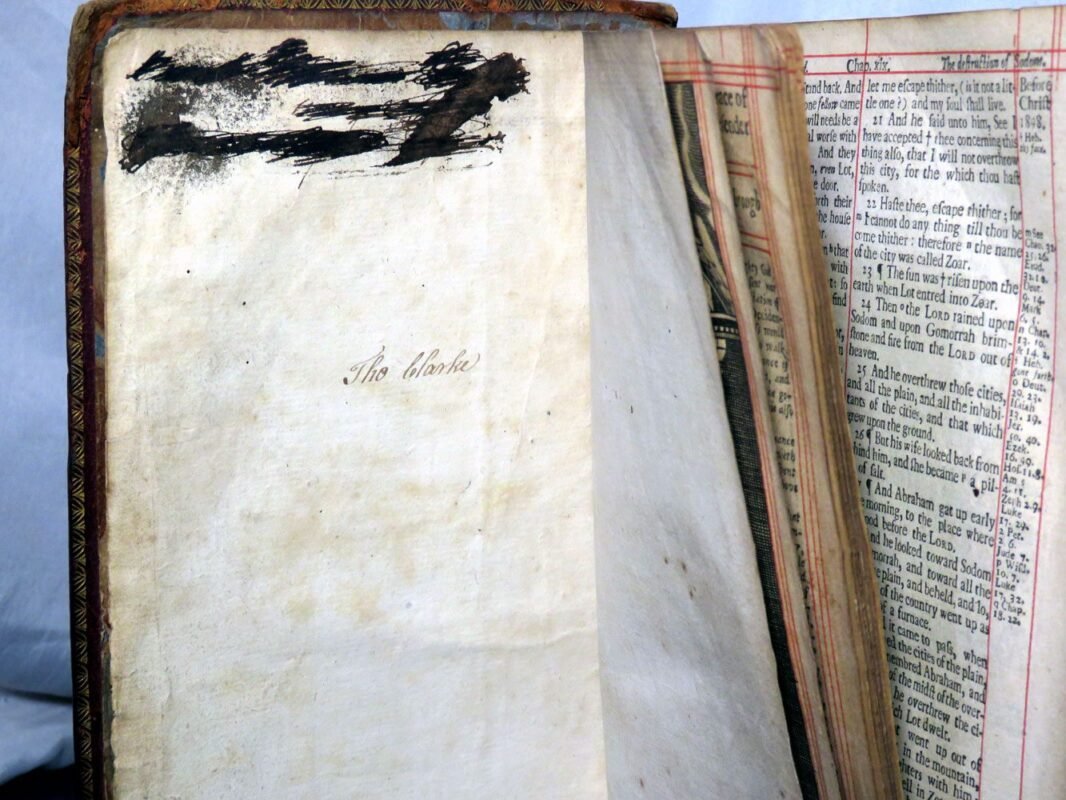 Tho Clarke
ace of
ender
rough
Chap. xix.
The destruction of Sodom.
tand back, And
one fellow came
will needs be a
al worse with
And they
n, even Lot,
e door.
orth their
he house
n that
with
to
find
let me escape thither, (is it not a lit-
tle one?) and my soul shall live.
21 And he said unto him, See I
have accepted † thee concerning this
thing also, that I will not overthrow
this city, for the which thou hast
spoken.
22 Haste thee, escape thither; for
I cannot do any thing till thou be
come thither: therefore the name
of the city was called Zoar.
23 ¶ The sun was † risen upon the
earth when Lot entred into Zoar.
24 Then the LORD rained upon
Sodom and upon Gomorrah brim-
stone and fire from the LORD out of
heaven.
25 And he overthrew those cities,
and all the plain, and all the inhabi-
tants of the cities, and that which
grew upon the ground.
26 ¶ But his wife looked back from
hind him, and she became p a pil-
of salt.
¶ And Abraham gat up early
e morning, to the place where
ood before the LORD.
nd he looked toward Sodom
morrah, and toward all the
e plain, and beheld, and lo,
of the country went up as
f a furnace.
it came to pass, when
ed the cities of the plain,
membred Abraham, and
of the midst of the over-
he overthrew the ci-
ch Lot dwelt.
went up out of
in the mountain,
ghters with him
ell in
Before
Christ
1898.
† Heb.
thy face.
m See
Chap. 32.
25. 26.
Exod.
32. 10.
Deut.
9. 14.
Mark
6. 5.
n Chap.
13. 10.
& 14. 2.
† Heb.
gone forth.
o Deut.
29. 23.
Isaiah
13. 19.
Jer.
50. 40.
Ezek.
16. 49.
Hos. 11. 8.
Am.
4. 11.
Zeph 2. 9.
Luke
17. 29.
2 Pet.
2. 6.
Jude 7.
p Wisd.
10. 7.
Luke
17. 32.
q Chap.
18. 22.